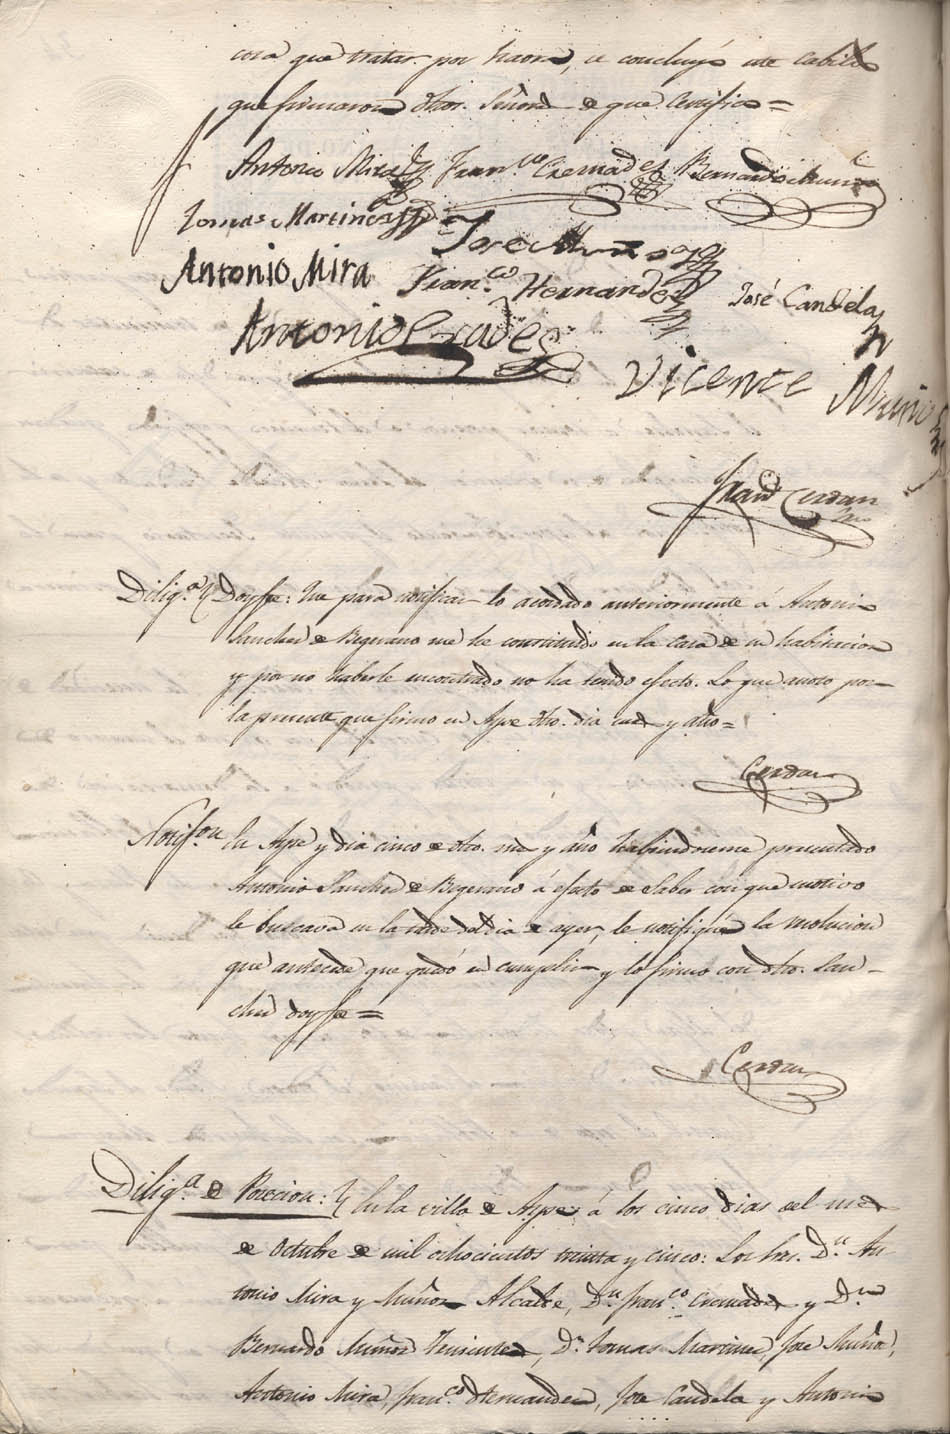 cosa que tratar por haora, se concluyó este Cabildo
que firmaron dhos. Señores de que Certifico =
Antonio Mira Franco. Cremades Bernardo Muñoz
Tomas Martinez
Jose Muñoz
Antonio Mira Franco. Hernandez José Candela
Antonio Prades
Vicente Muñoz
Cerdan
Diliga. Doyfee: que para notificar lo acordado anteriormente á Antonio
Sanchez de Bigerano me he constituido en la casa de su habitacion
y por no haberle encontrado no ha tenido efecto. Lo que anoto por
la presente que firmo en Aspe dho. dia mes y año =
Cerdan
Notifon. En Aspe y dia cinco de dho. mes y año habiendoseme presentado
Antonio Sanchez de Bigerano á efecto de saber con que motivo
le buscava en la tarde del dia de ayer, le notifiqué la resolucion
que antecede que quedó en cumplir y lo firmo con dho. San-
chez doyfee =
Cerdan
Diliga. de Posecion: En la villa de Aspe á los cinco dias del mes
de Octubre de mil ochocientos treinta y cinco: Los Sres. Dn. An-
tonio Mira y Muñoz Alcalde, Dn. Franco. Cremades y Dn.
Bernardo Muñoz Tenientes, Dn. Tomas Martinez, Jose Muñoz,
Antonio Mira, Franco. Hernandez, Jose Candela y Antonio